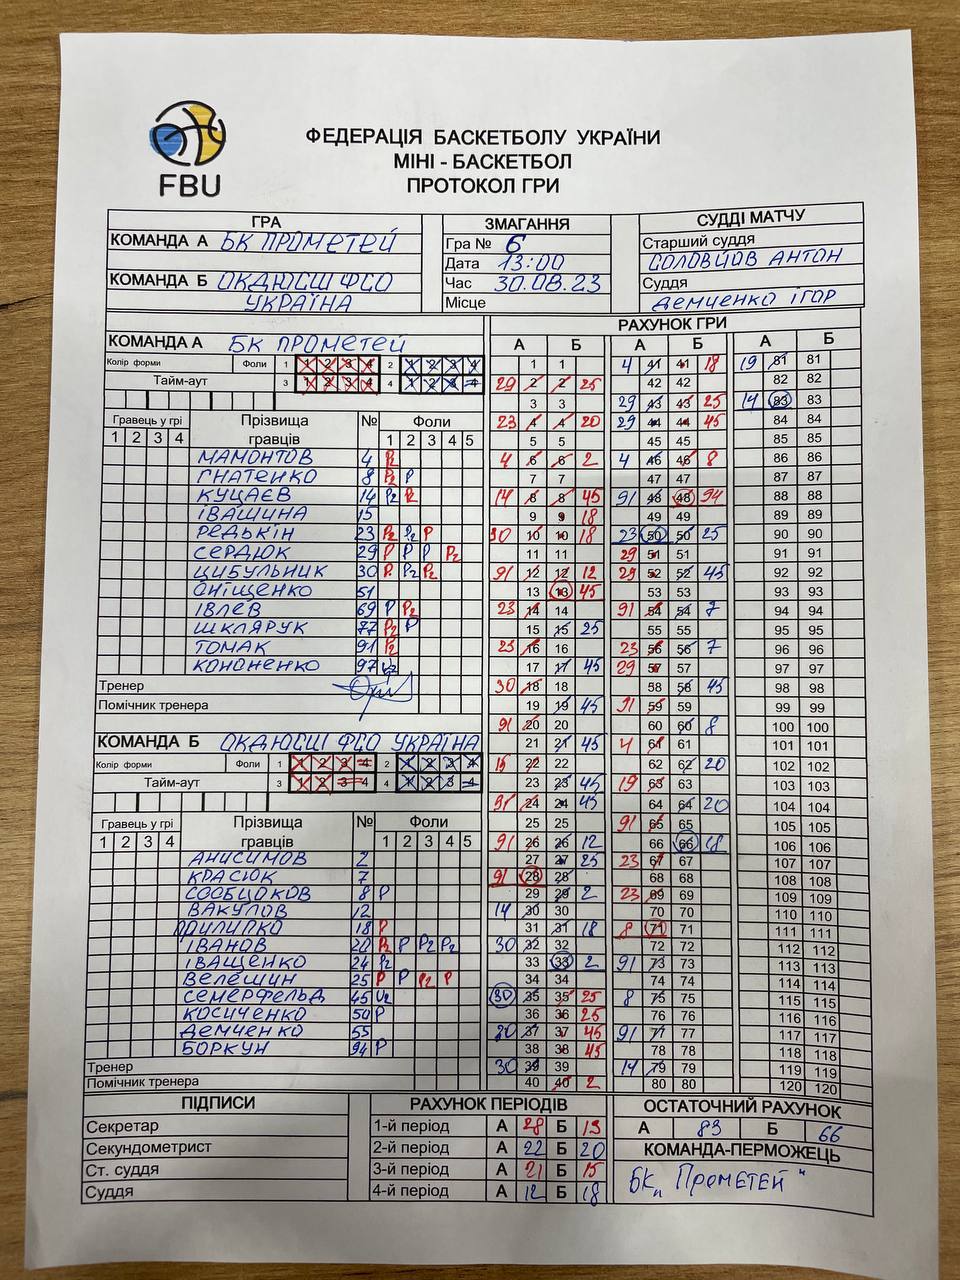 FBU
ФЕДЕРАЦІЯ БАСКЕТБОЛУ УКРАЇНИ
МІНІ - БАСКЕТБОЛ
ПРОТОКОЛ ГРИ
ГРА
КОМАНДА А БК ПРОМЕТЕЙ
КОМАНДА Б ОКДЮСШ ФСО
УКРАЇНА
ЗМАГАННЯ
Гра № 6
Дата 13:00
Час 30.08.23
Місце
СУДДІ МАТЧУ
Старший суддя
СОЛОВЙОВ АНТОН
Суддя
ДЕМЧЕНКО ІГОР
КОМАНДА А БК ПРОМЕТЕЙ
Колір форми Фоли 1 1 2 3 4 2 1 2 3 4
Тайм-аут 3 1 2 3 4 4 1 2 3 4
Гравець у грі Прізвища гравців № Фоли
1 2 3 4 1 2 3 4 5
МАМОНТОВ 4 P2
ГНАТЕНКО 8 P2 P
КУЦАЄВ 14 P2 P2
ІВАШИНА 15
РЕДЬКІН 23 P2 P2 P
СЕРДЮК 29 P P P P2
ЦИБУЛЬНИК 30 P P2 P2
ОНІЩЕНКО 51
ІВЛЕВ 69 P P2
ШКЛЯРУК 77 P2 P
ТОМАК 91 P2
КОНОНЕНКО 97
Тренер
Помічник тренера
КОМАНДА Б ОКДЮСШ ФСО УКРАЇНА
Колір форми Фоли 1 1 2 3 4 2 1 2 3 4
Тайм-аут 3 1 2 3 4 4 1 2 3 4
Гравець у грі Прізвища гравців № Фоли
1 2 3 4 1 2 3 4 5
АНИСИМОВ 2
КРАСЮК 7
8 P
ВАКУЛОВ 12
ПРИЛИПКО 18 P
ІВАНОВ 20 P2 P P2 P2
ІВАЩЕНКО 24 P2
ВЕЛЕЩИН 25 P P P2 P
СЕМЕРФЕЛЬД 45 U2
КОСИЧЕНКО 50 P
ДЕМЧЕНКО 55
БОРКУН 94 P
Тренер
Помічник тренера
РАХУНОК ГРИ
А Б
1 1
29 2 2 25
3 3
23 4 4 20
5 5
4 6 6 2
7 7
14 8 8 45
9 9 18
30 10 10 18
11 11
91 12 12 12
13 13 45
23 14 14
15 15 25
23 16 16
17 17 45
30 18 18
19 19 45
91 20 20
21 21 45
15 22 22
23 23 45
91 24 24 45
25 25
91 26 26 12
27 27 25
91 28 28
29 29 2
14 30 30
31 31 18
30 32 32
33 33 2
34 34
30 35 35 25
36 36 25
30 37 37 45
38 38 45
30 39 39
40 40 2
А Б
4 41 41 18
42 42
29 43 43 25
29 44 44 45
45 45
4 46 46 8
47 47
91 48 48 94
49 49
23 50 50 25
29 51 51
29 52 52 45
53 53
91 54 54 7
55 55
23 56 56 7
29 57 57
58 58 45
91 59 59
60 60 8
4 61 61
62 62 20
19 63 63
64 64 20
91 65 65
66 66 18
23 67 67
68 68
23 69 69
70 70
8 71 71
72 72
91 73 73
74 74
8 75 75
76 76
91 77 77
78 78
14 79 79
80 80
А Б
19 81 81
82 82
14 83 83
84 84
85 85
86 86
87 87
88 88
89 89
90 90
91 91
92 92
93 93
94 94
95 95
96 96
97 97
98 98
99 99
100 100
101 101
102 102
103 103
104 104
105 105
106 106
107 107
108 108
109 109
110 110
111 111
112 112
113 113
114 114
115 115
116 116
117 117
118 118
119 119
120 120
ПІДПИСИ
Секретар
Секундометрист
Ст. суддя
Суддя
РАХУНОК ПЕРІОДІВ
1-й період А 28 Б 13
2-й період А 22 Б 20
3-й період А 21 Б 15
4-й період А 12 Б 18
ОСТАТОЧНИЙ РАХУНОК
А 83 Б 66
КОМАНДА-ПЕРМОЖЕЦЬ
БК „Прометей"